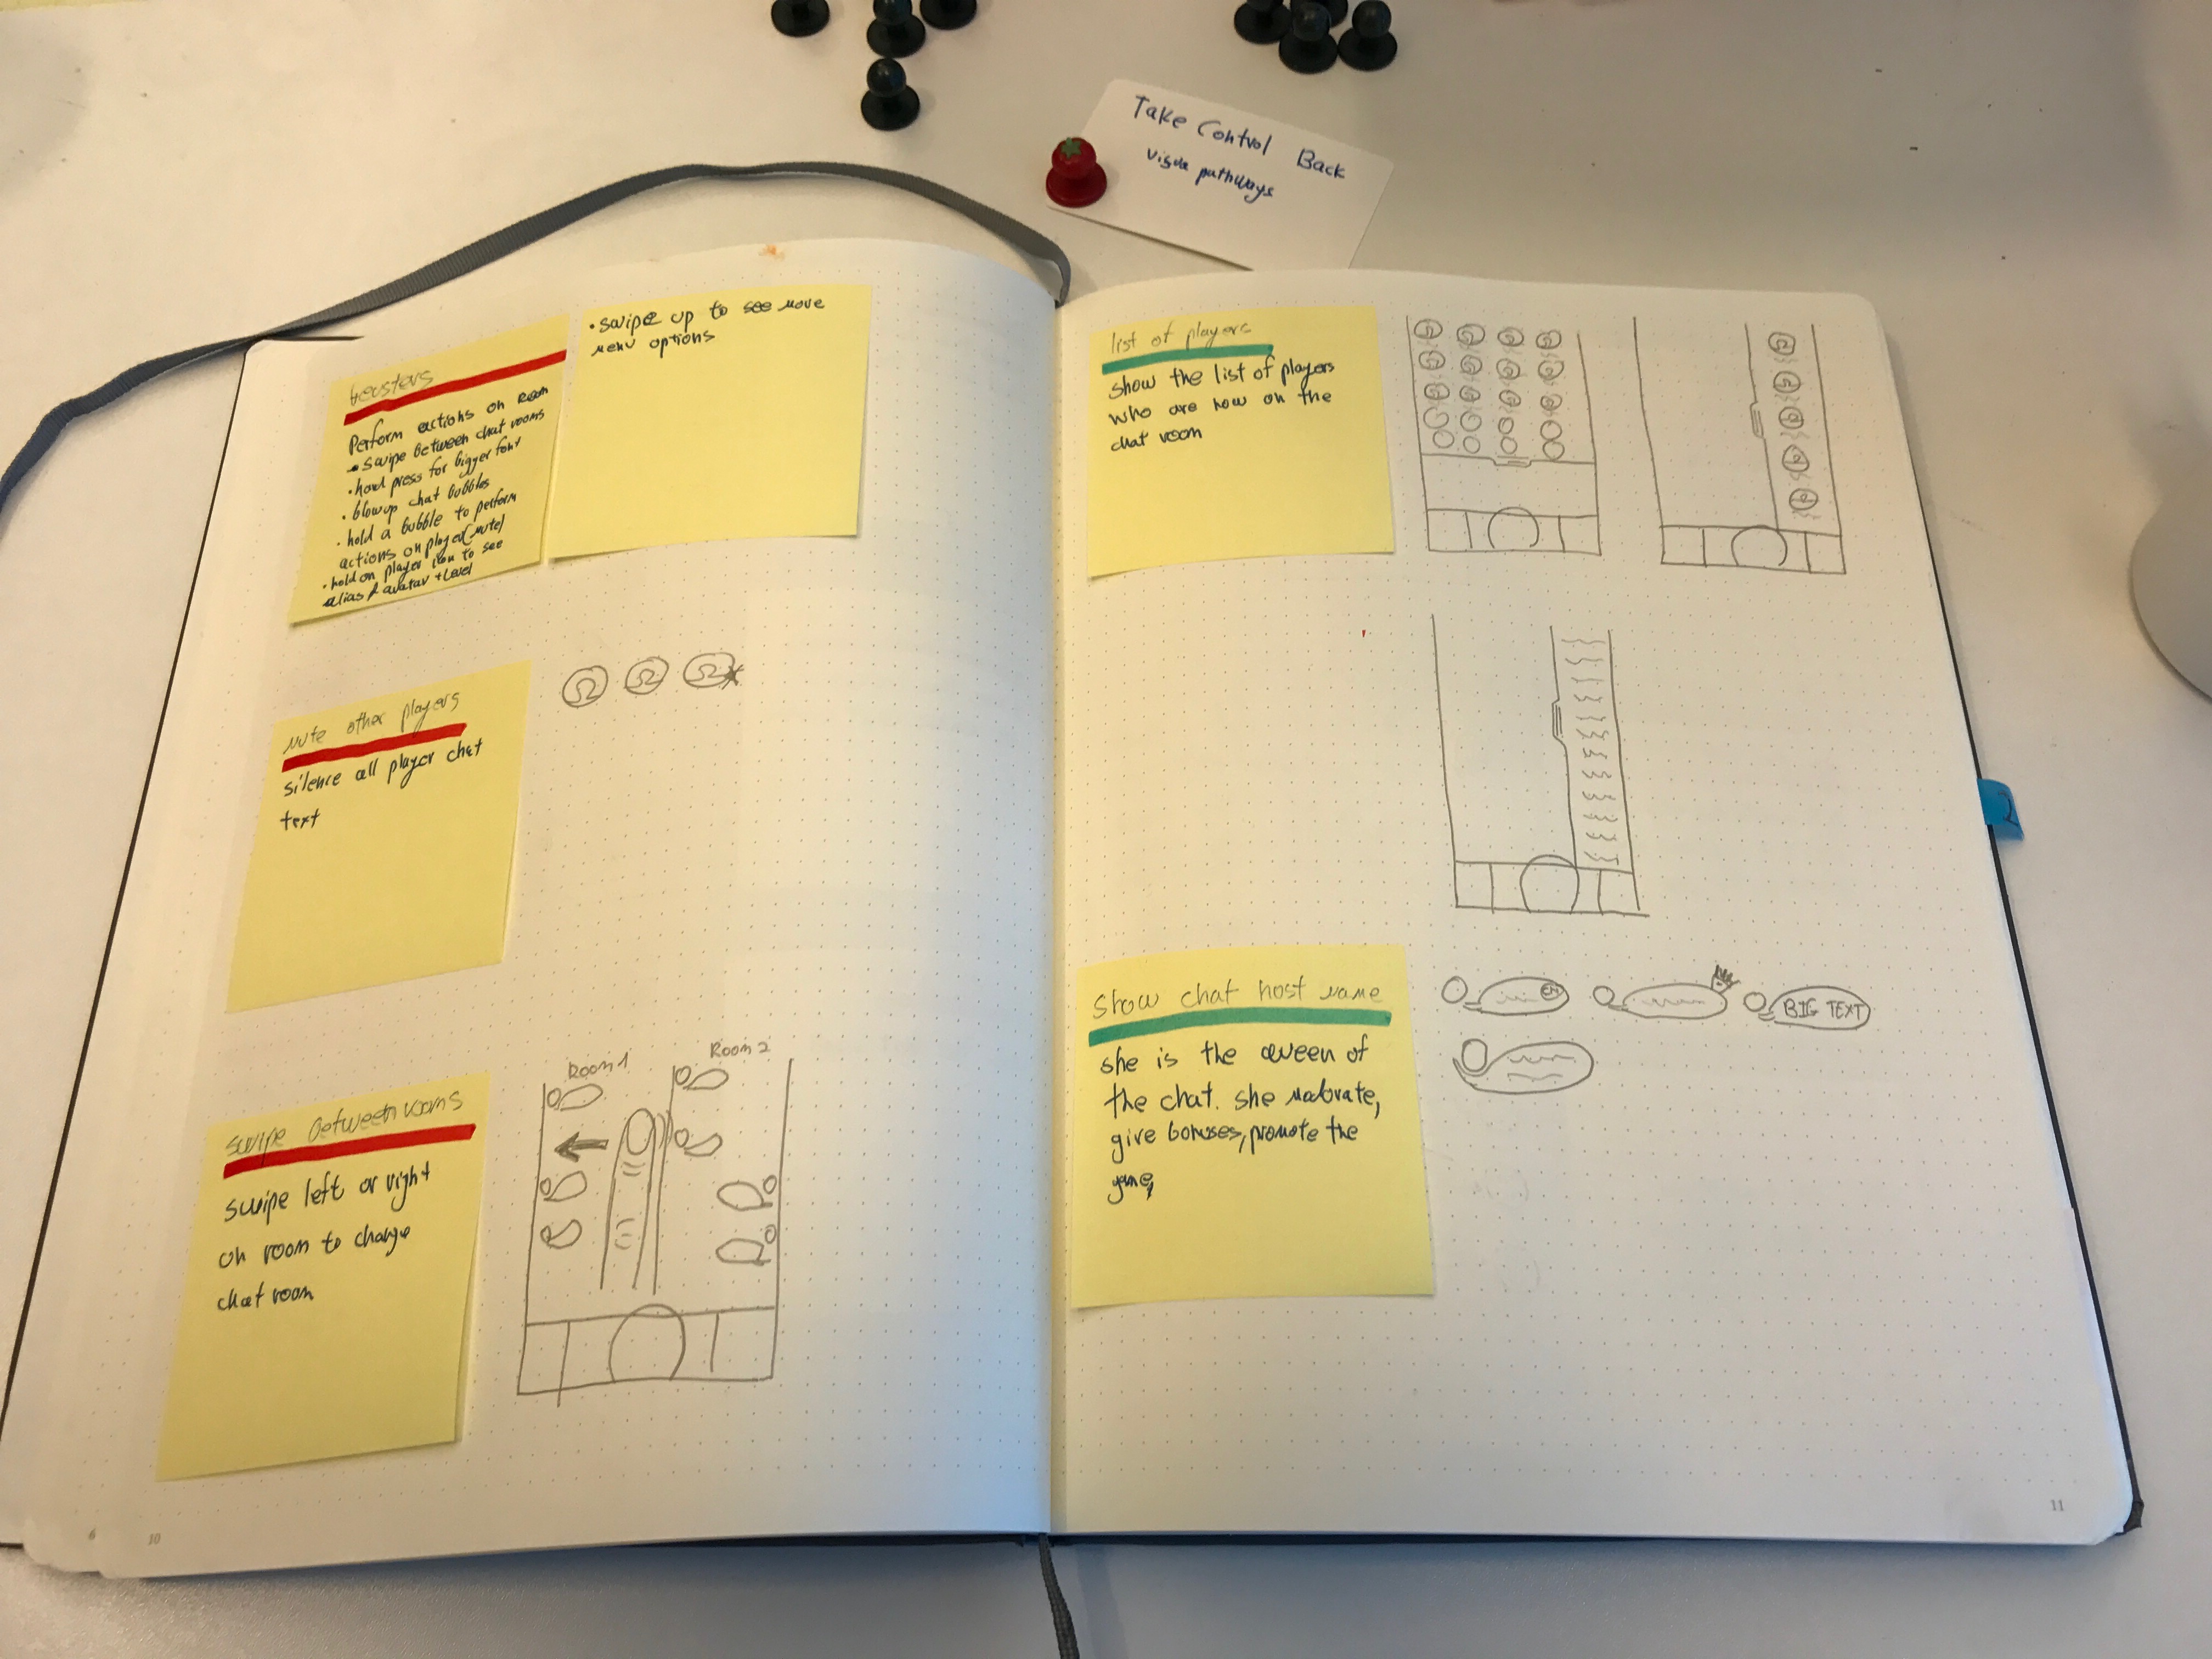 Take Control Back
pathways
Perform actions on Room
• swipe between chat rooms
• hard press for bigger font
• blow up chat bubbles
• hold a bubble to perform
actions on player (mute)
• hold on player item to see
alias & avatar + level
• swipe up to see more
menu options
mute other players
silence all player chat
text
swipe between rooms
swipe left or right
on room to change
chat room
Room 1
Room 2
list of players
show the list of players
who are now on the
chat room
show chat host name
she is the queen of
the chat. she
give bonuses, promote the
game
BIG TEXT
2
6
10
11